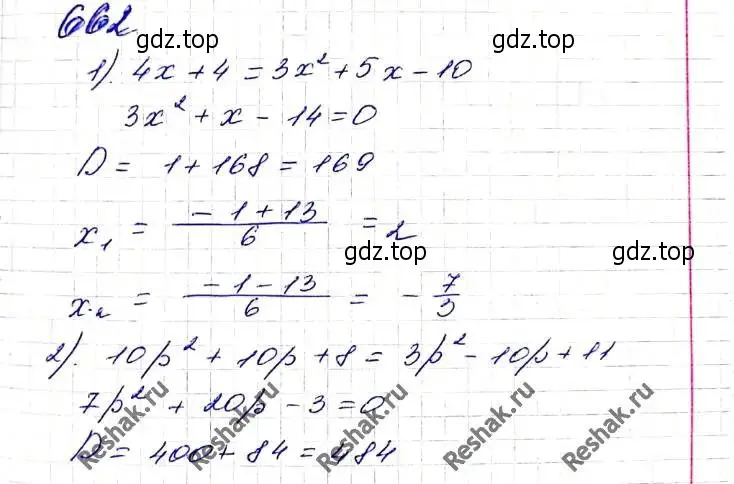 662
gdz.top gdz.top
1). 4x + 4 = 3x² + 5x - 10
3x² + x - 14 = 0
D = 1 + 168 = 169
x₁ = (-1 + 13)/6 = 2
gdz.top gdz.top
x₂ = (-1 - 13)/6 = -7/3
2). 10p² + 10p + 8 = 3p² - 10p + 11
7p² + 20p - 3 = 0
D = 400 + 84 = 484
Reshak.ru Reshak.ru Reshak.ru Reshak.ru Reshak.ru